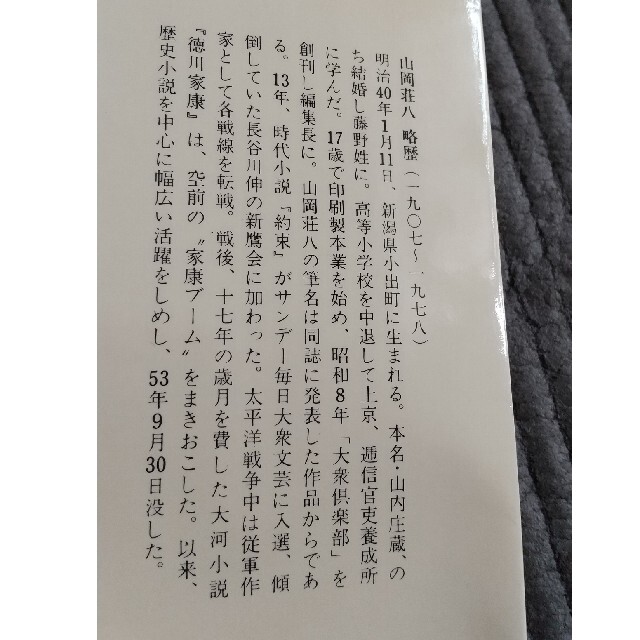 山岡荘八 略歴(一九〇七〜一九七八)
明治40年1月11日、新潟県小出町に生まれる。本名・山内庄蔵、の
ち結婚し藤野姓に。高等小学校を中退して上京、逓信官吏養成所
に学んだ。17歳で印刷製本業を始め、昭和8年「大衆倶楽部」を
創刊し編集長に。山岡荘八の筆名は同誌に発表した作品からであ
る。13年、時代小説『約束』がサンデー毎日大衆文芸に入選、傾
倒していた長谷川伸の新鷹会に加わった。太平洋戦争中は従軍作
家として各戦線を転戦。戦後、十七年の歳月を費した大河小説
『徳川家康』は、空前の〝家康ブーム〟をまきおこした。以来、
歴史小説を中心に幅広い活躍をしめし、53年9月30日没した。